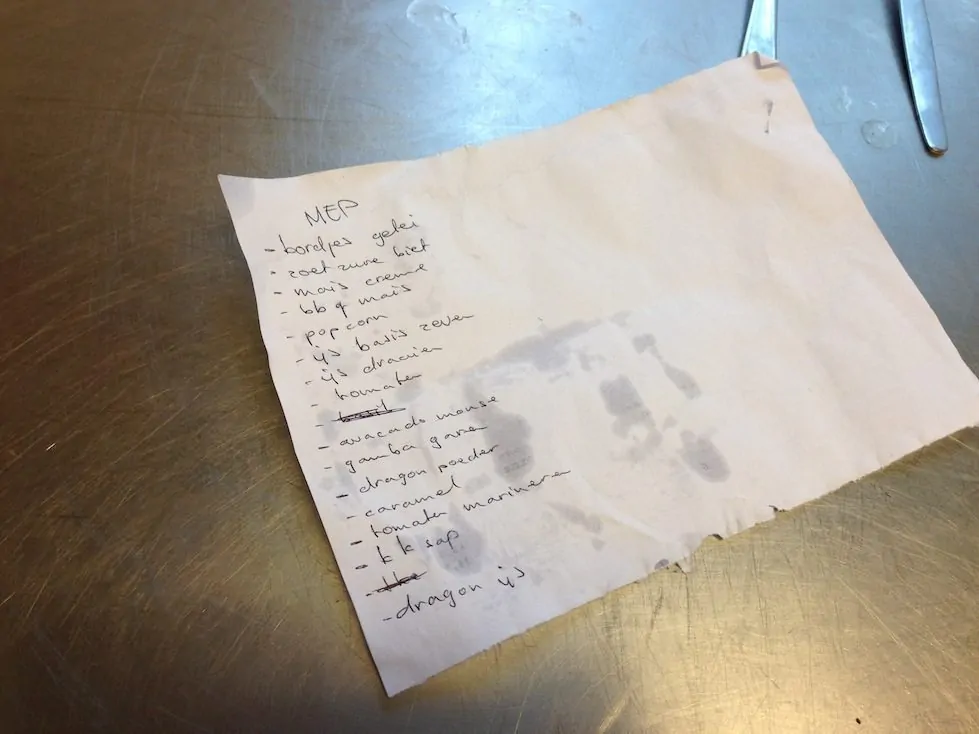 MEP
- bordjes gelei
- zoet zure biet
- mais creme
- bbq mais
- popcorn
- ijs basis zeven
- ijs draaien
- tomaten
- basil
- avacado mousse
- gamba garen
- dragon poeder
- caramel
- tomaten marineren
- kk sap
-
- dragon ijs